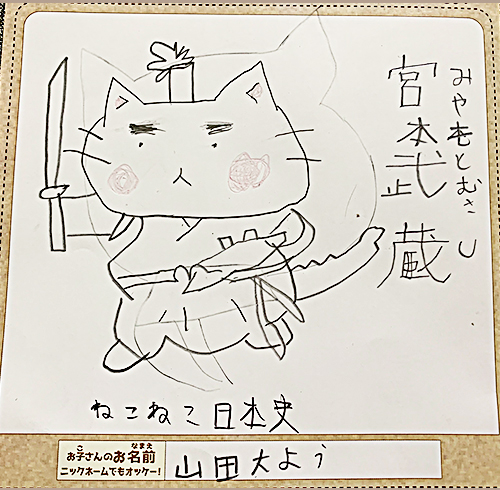 宮本武蔵
みやもとむさし
ねこねこ日本史
お子さんのお名前
こ なまえ
ニックネームでもオッケー!
山田大よう